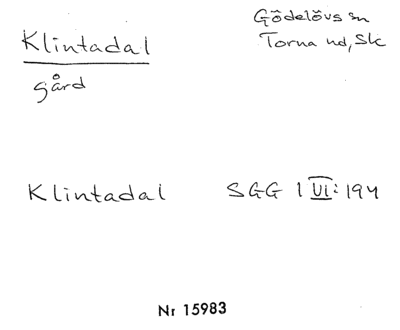 Klintadal
Gödelövs sn
Torna hd, Sk
gård
Klintadal SGG 1 VI: 194
Nr 15983